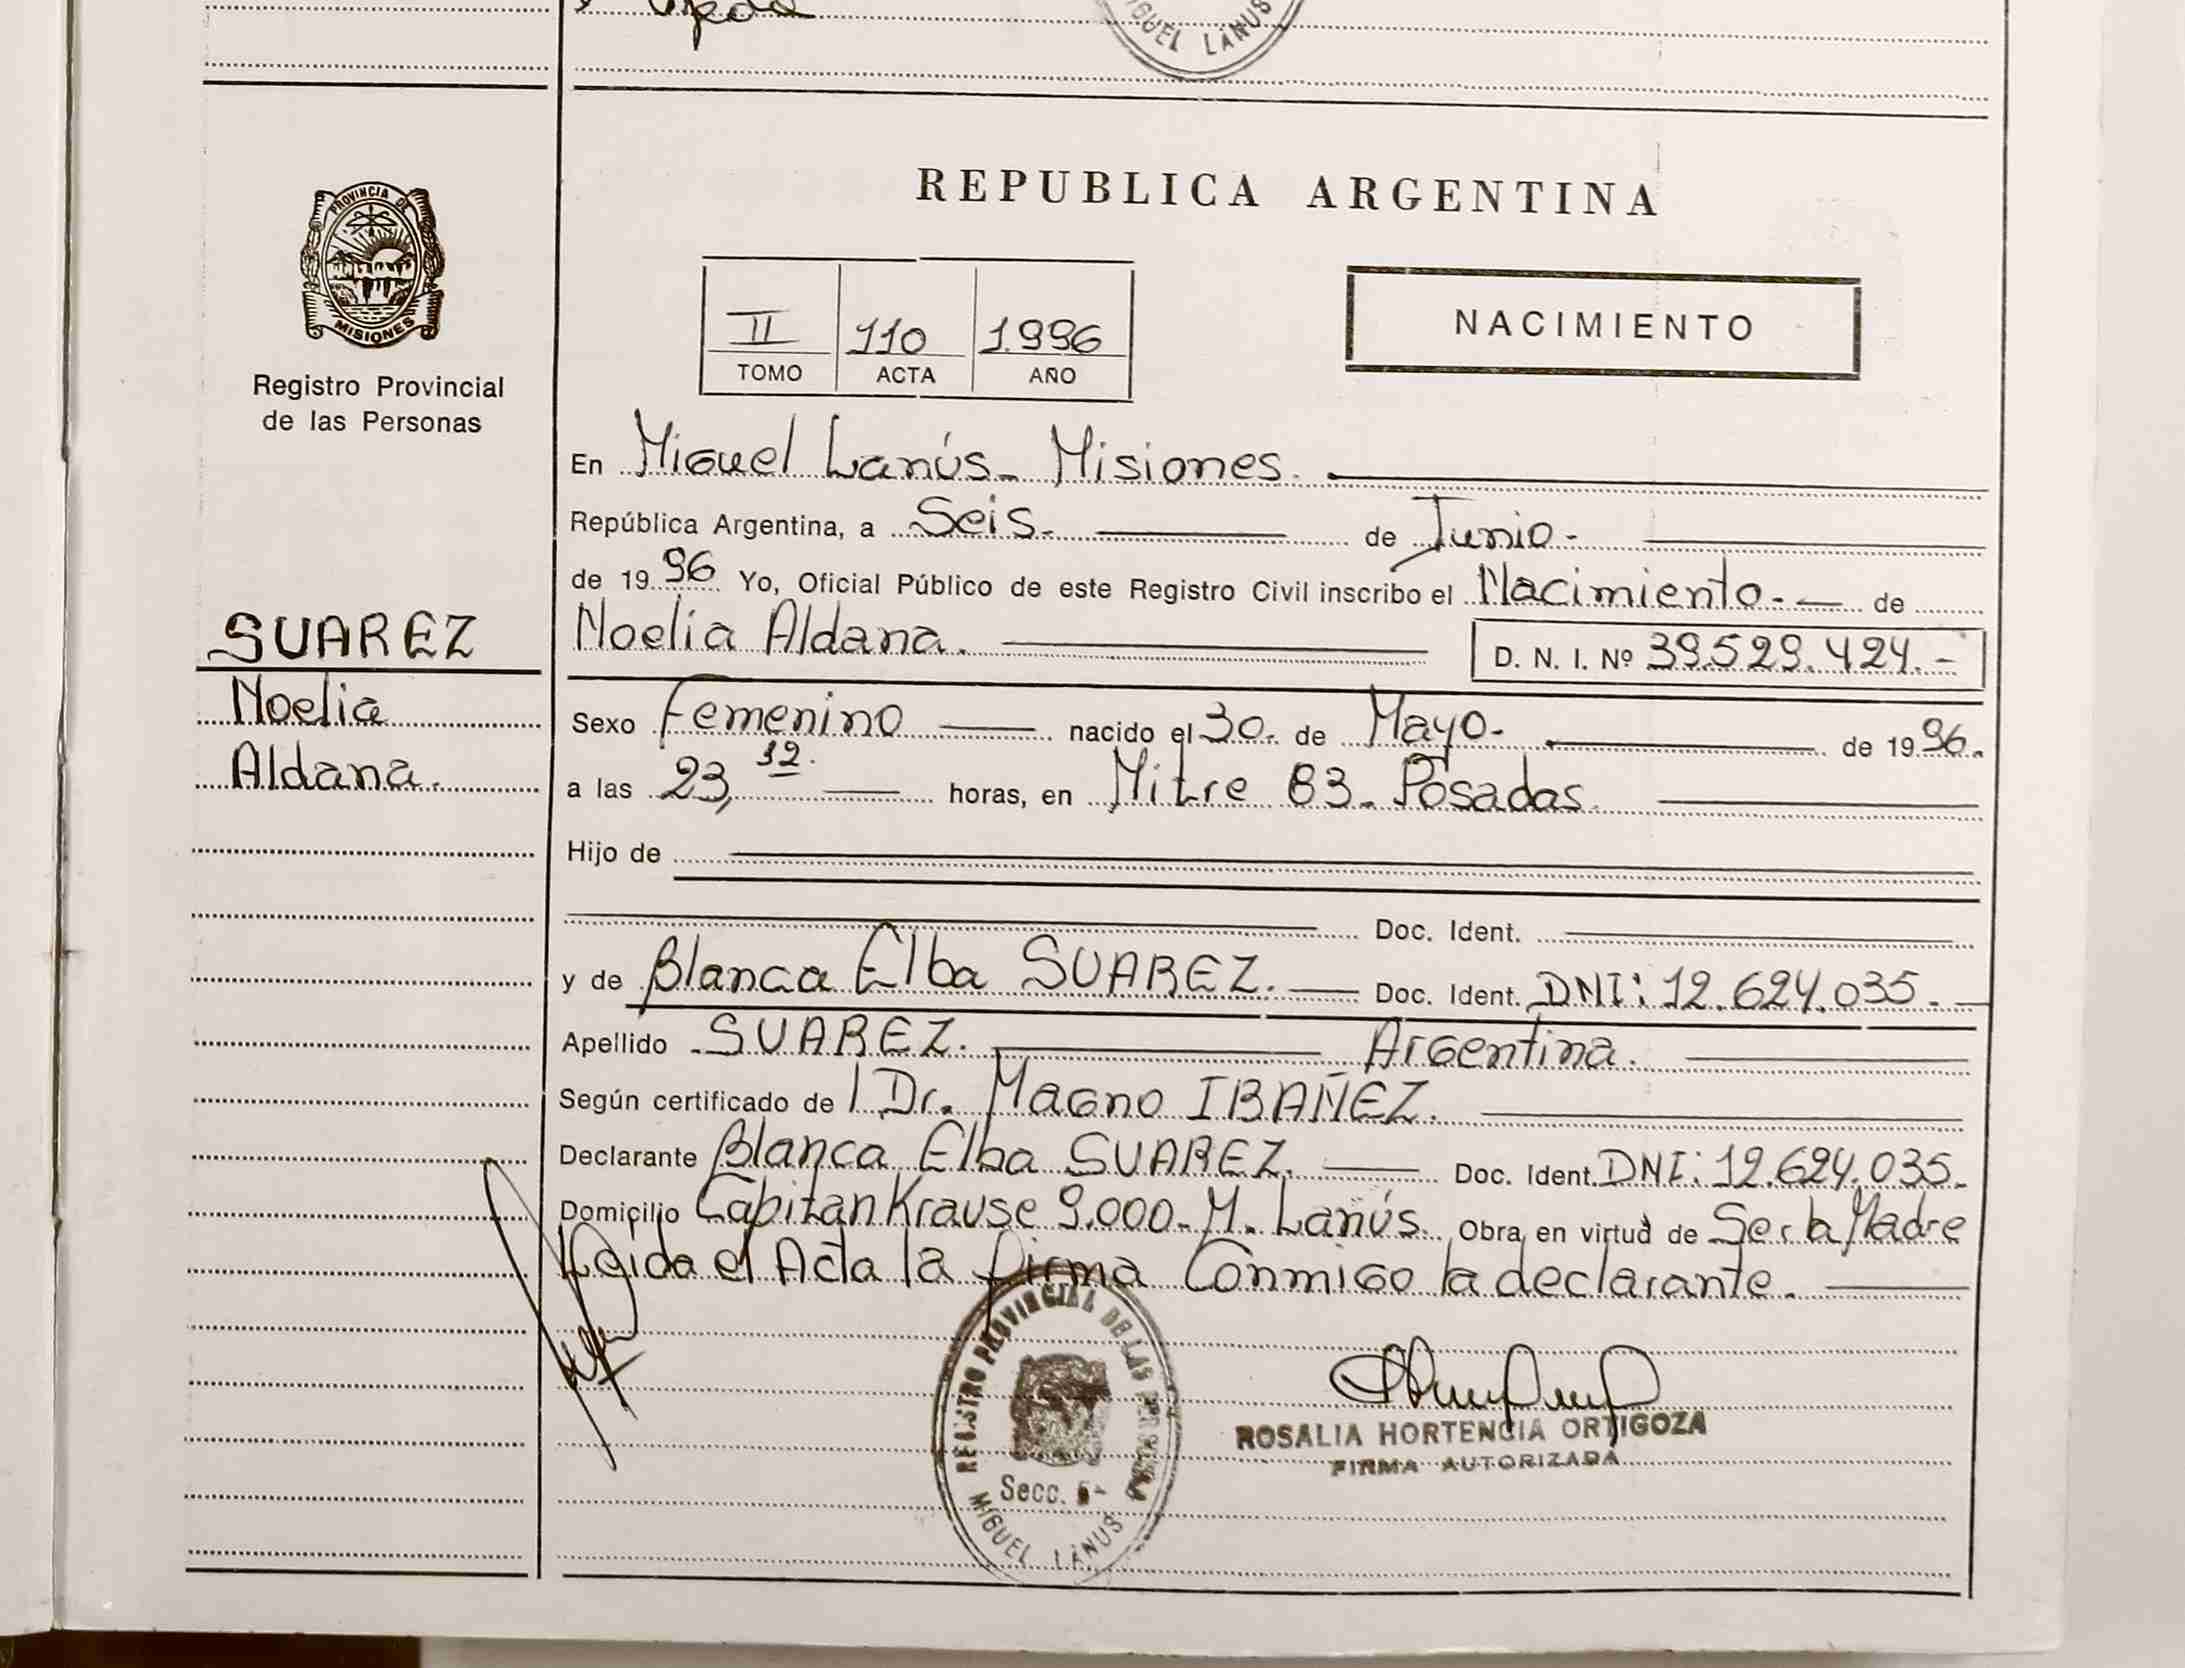 MIGUEL LANUS
PROVINCIA DE
MISIONES
Registro Provincial
de las Personas
SUAREZ
Noelia
Aldana.
REPUBLICA ARGENTINA
II 110 1.996
TOMO ACTA AÑO
NACIMIENTO
En Miguel Lanús - Misiones.
República Argentina, a Seis. de Junio.
de 1996 Yo, Oficial Público de este Registro Civil inscribo el Nacimiento. de
Noelia Aldana. D. N. I. Nº 39.529.424.-
Sexo Femenino nacido el 30. de Mayo. de 1996.
a las 23, 12. horas, en Mitre 83. Posadas.
Hijo de
Doc. Ident.
y de Blanca Elba SUAREZ. Doc. Ident. DNI: 12.624.035.
Apellido SUAREZ. Argentina.
Según certificado de l Dr. Magno IBAÑEZ.
Declarante Blanca Elba SUAREZ. Doc. Ident. DNI: 12.624.035.
Domicilio Capitan Krause 9.000. M. Lanús. Obra en virtud de Ser la Madre
Leida el Acta la firma Conmigo la declarante.
REGISTRO PROVINCIAL DE LAS
Secc.
MIGUEL LANUS
ROSALIA HORTENCIA ORTIGOZA
FIRMA AUTORIZADA